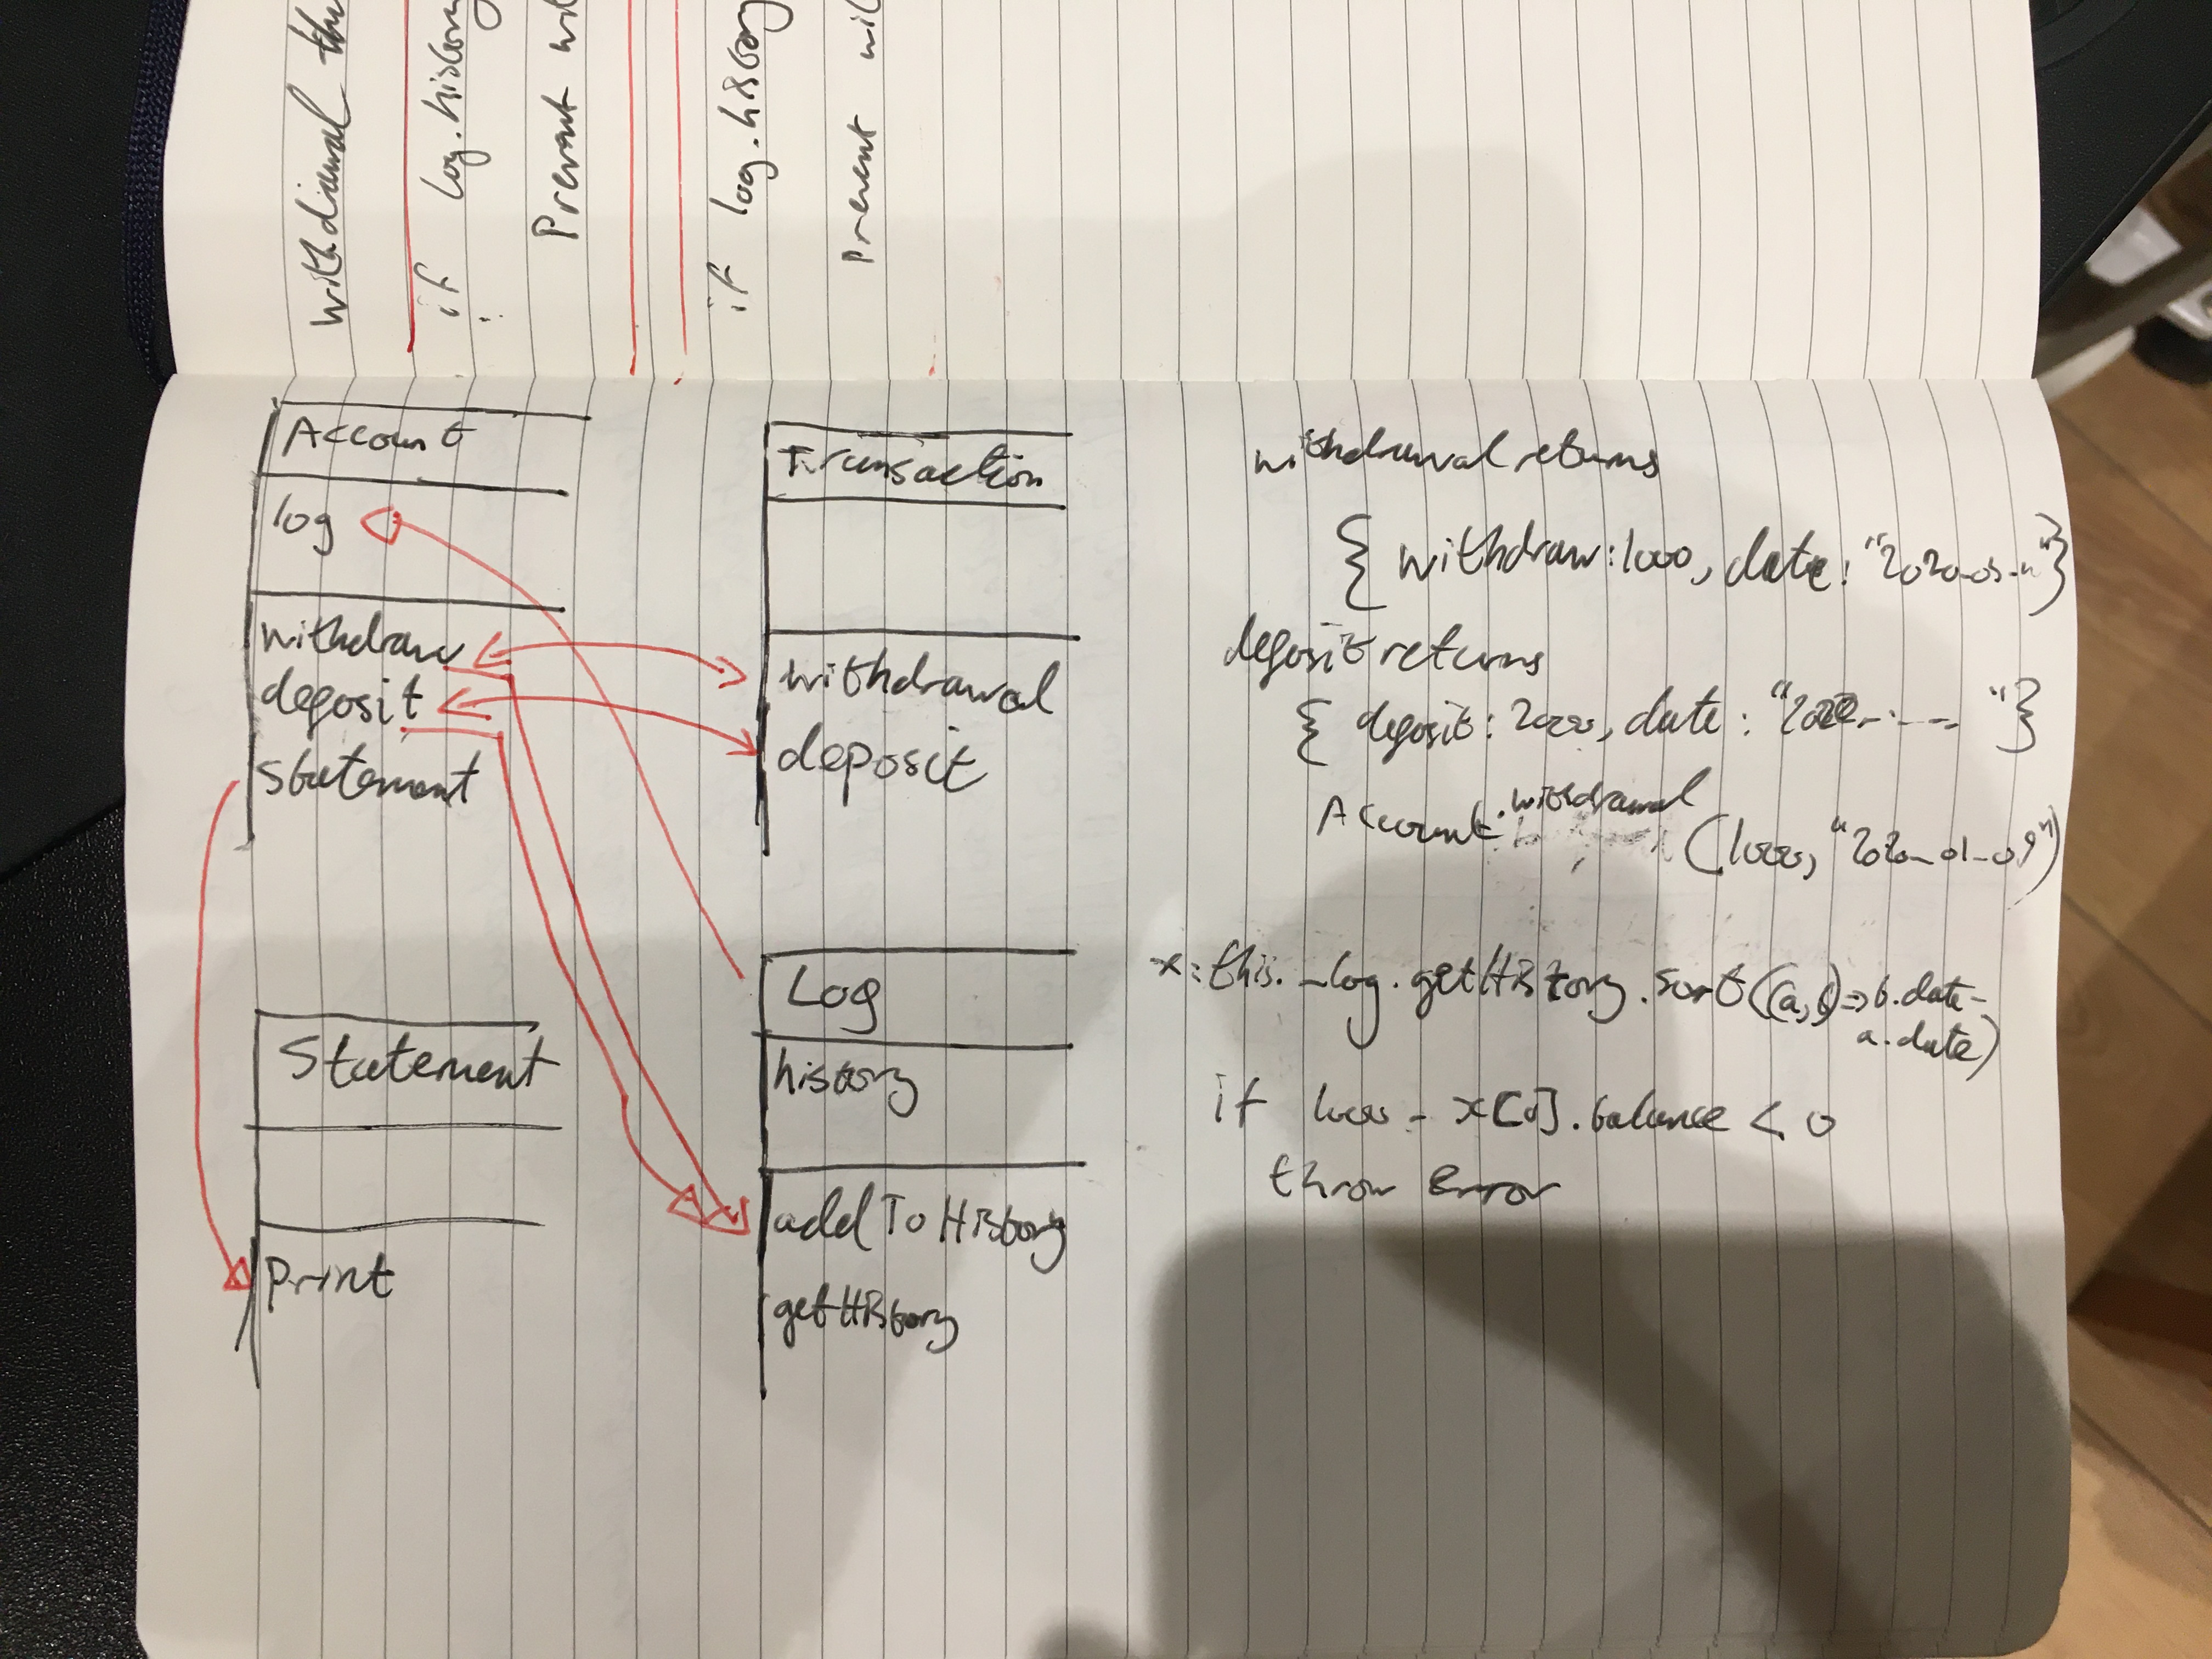 withdrawal the
if log.history
Prevent wi
if log.history
Prevent wil
Account
log
withdraw
deposit
statement
Transaction
withdrawal
deposit
Statement
Print
Log
history
addToHistory
getHistory
withdrawal returns
{ withdraw: 1000, date: "2020-03-.."}
deposit returns
{ deposit: 2000, date: "202 ----- "}
Account.withdrawal
(1000, "2020-01-09")
x: this._log.getHistory.sort((a,b)=>b.date-
a.date)
if 1000 - x[0].balance < 0
throw Error